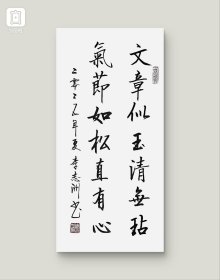 文章似玉清無玷
氣節如松直有心
二零二五年夏李志洲书